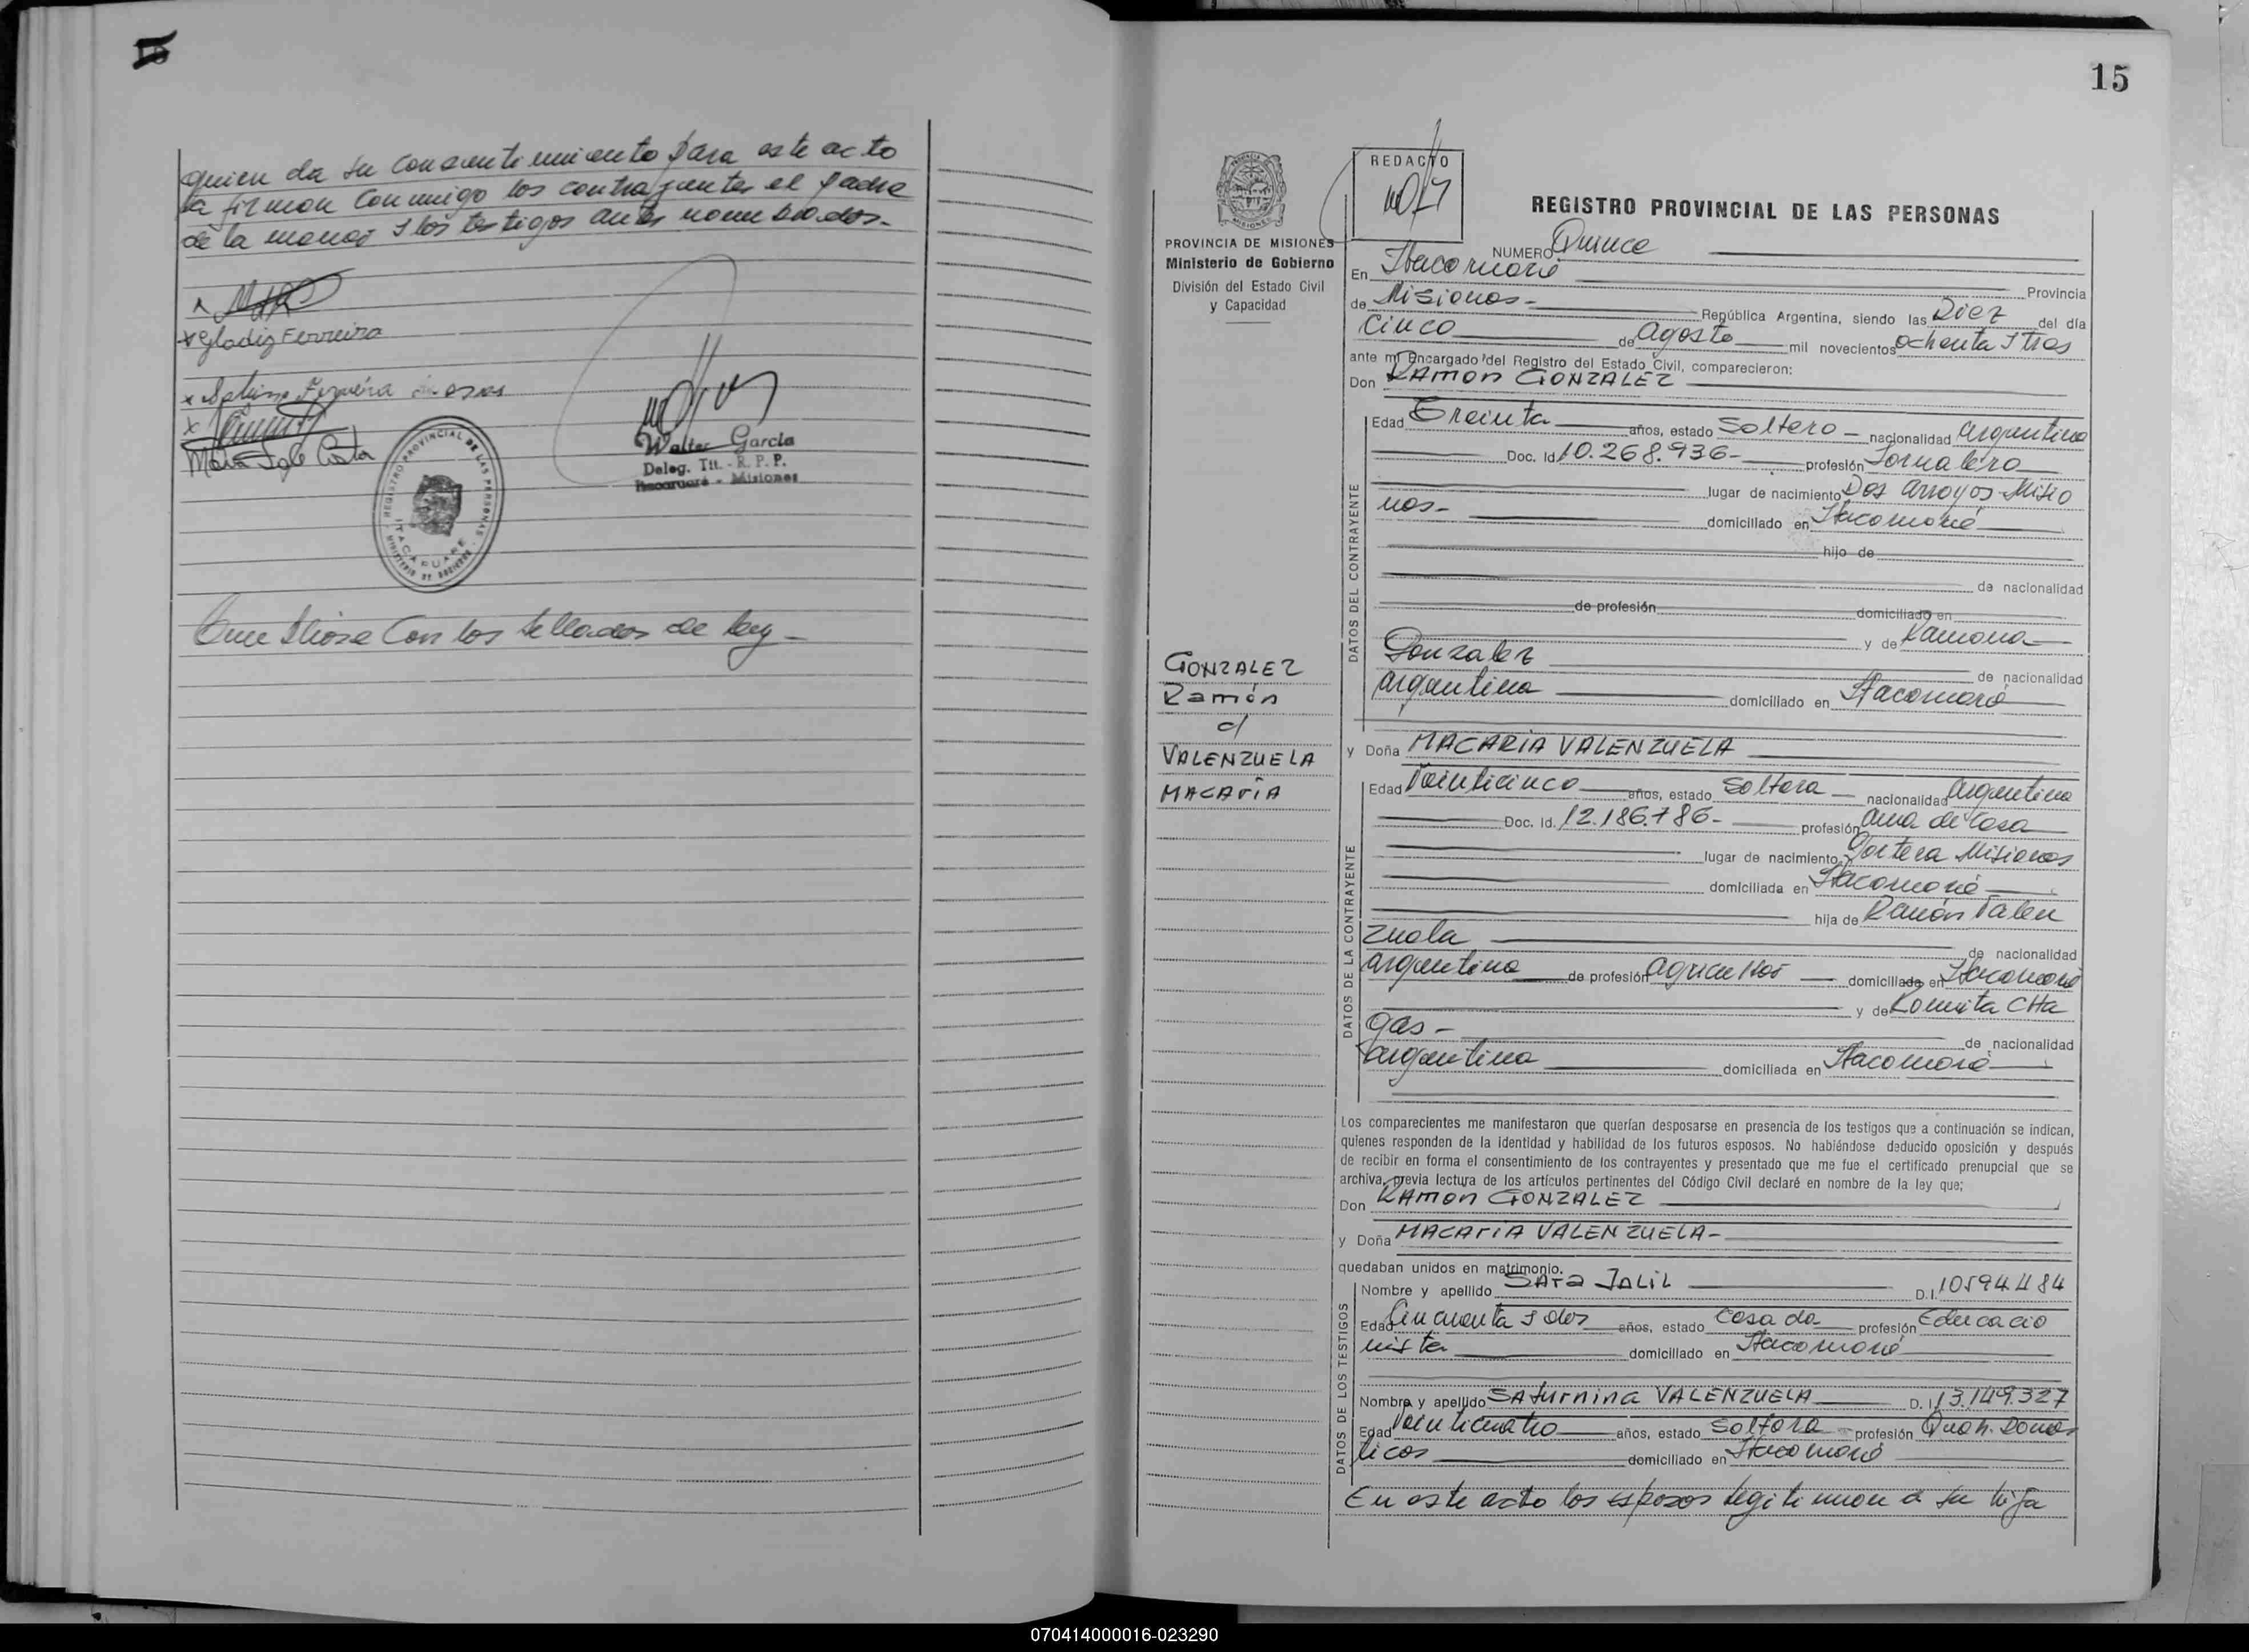 quien da su consentimiento para este acto
la firman conmigo los contrayentes el padre
de la menor y los testigos antes nombrados.-
x
x Gladis Ferreira
x Ferreira
x
Maria Costa
Walter Garcia
Deleg. Tit. - R. P. P.
Itacaruaré - Misiones
REGISTRO PROVINCIAL DE LAS PERSONAS
ITACARUARE
MINISTERIO DE GOBIERNO
Con los sellados de ley -
15
REDACTO
PROVINCIA DE MISIONES
Ministerio de Gobierno
División del Estado Civil
y Capacidad
GONZALEZ
Ramón
c/
VALENZUELA
MACARIA
REGISTRO PROVINCIAL DE LAS PERSONAS
NUMERO Quince
En Itacaruaré Provincia
de Misiones.- República Argentina, siendo las Diez del día
Cinco de agosto mil novecientos ochenta y tres
ante mí Encargado del Registro del Estado Civil, comparecieron:
Don RAMON GONZALEZ
DATOS DEL CONTRAYENTE
Edad Treinta años, estado Soltero - nacionalidad argentina
Doc. Id. 10.268.936- profesión Jornalero
lugar de nacimiento Dos Arroyos-Misio
nes.- domiciliado en Itacaruaré
hijo de
de nacionalidad
de profesión domiciliado en
y de Ramona
Gonzalez de nacionalidad
argentina domiciliado en Itacaruaré
y Doña MACARIA VALENZUELA
DATOS DE LA CONTRAYENTE
Edad Veinticinco años, estado Soltera - nacionalidad argentina
Doc. Id. 12.186.786- profesión ama de casa
lugar de nacimiento Portera Misiones
domiciliada en Itacaruaré
hija de Ramón Valen
zuela de nacionalidad
argentina de profesión agricultor domiciliada en Itacaruaré
y de Romita CHa
gas - de nacionalidad
argentina domiciliada en Itacaruaré
Los comparecientes me manifestaron que querían desposarse en presencia de los testigos que a continuación se indican,
quienes responden de la identidad y habilidad de los futuros esposos. No habiéndose deducido oposición y después
de recibir en forma el consentimiento de los contrayentes y presentado que me fue el certificado prenupcial que se
archiva, previa lectura de los artículos pertinentes del Código Civil declaré en nombre de la ley que;
Don RAMON GONZALEZ
y Doña MACARIA VALENZUELA-
quedaban unidos en matrimonio.
DATOS DE LOS TESTIGOS
Nombre y apellido SARA JALIL D.I. 10594484
Edad Cincuenta y dos años, estado Casada profesión Educacio
nista domiciliado en Itacaruaré
Nombre y apellido SAturnina VALENZUELA D.I. 13.149.327
Edad Veinticuatro años, estado Soltera profesión Queh. Domes
ticos domiciliado en Itacaruaré
En este acto los esposos legitiman a su hija
070414000016-023290